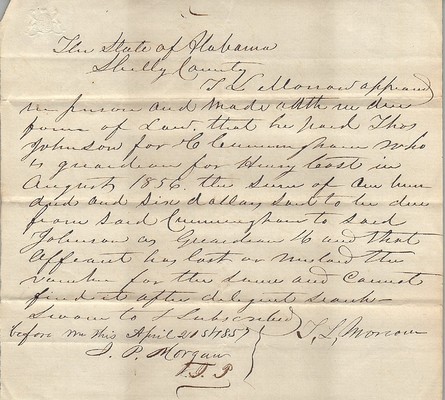 The State of Alabama
Shelby County
T L Morrow appeared
in person and made oath in due
form of Law. that he paid Thos
Johnson for H Cunningham who
is guardean for Henry Cost in
August 1856. the sum of one hun
dred and six dollars said to be due
from said Cunningham to said
Johnson as Gueardean and that
Affiant has lost or mislad the
voucher for the same and Cannot
find it after delegent search
Sworn to & Subscribed
before me this April 21st 1857
T, L, Morrow
J. P. Morgan
J. P